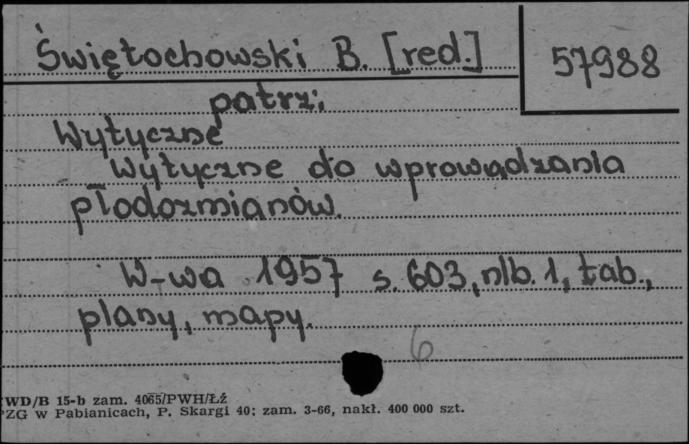 Świętochowski B. [red.]
57988
patrz:
Wytyczne
Wytyczne do wprowadzania
płodozmianów.
W-wa 1957 s. 603, nlb. 1, tab.,
plany, mapy.
6
WD/B 15-b zam. 4065/PWH/Łź
PZG w Pabianicach, P. Skargi 40; zam. 3-66, nakł. 400 000 szt.